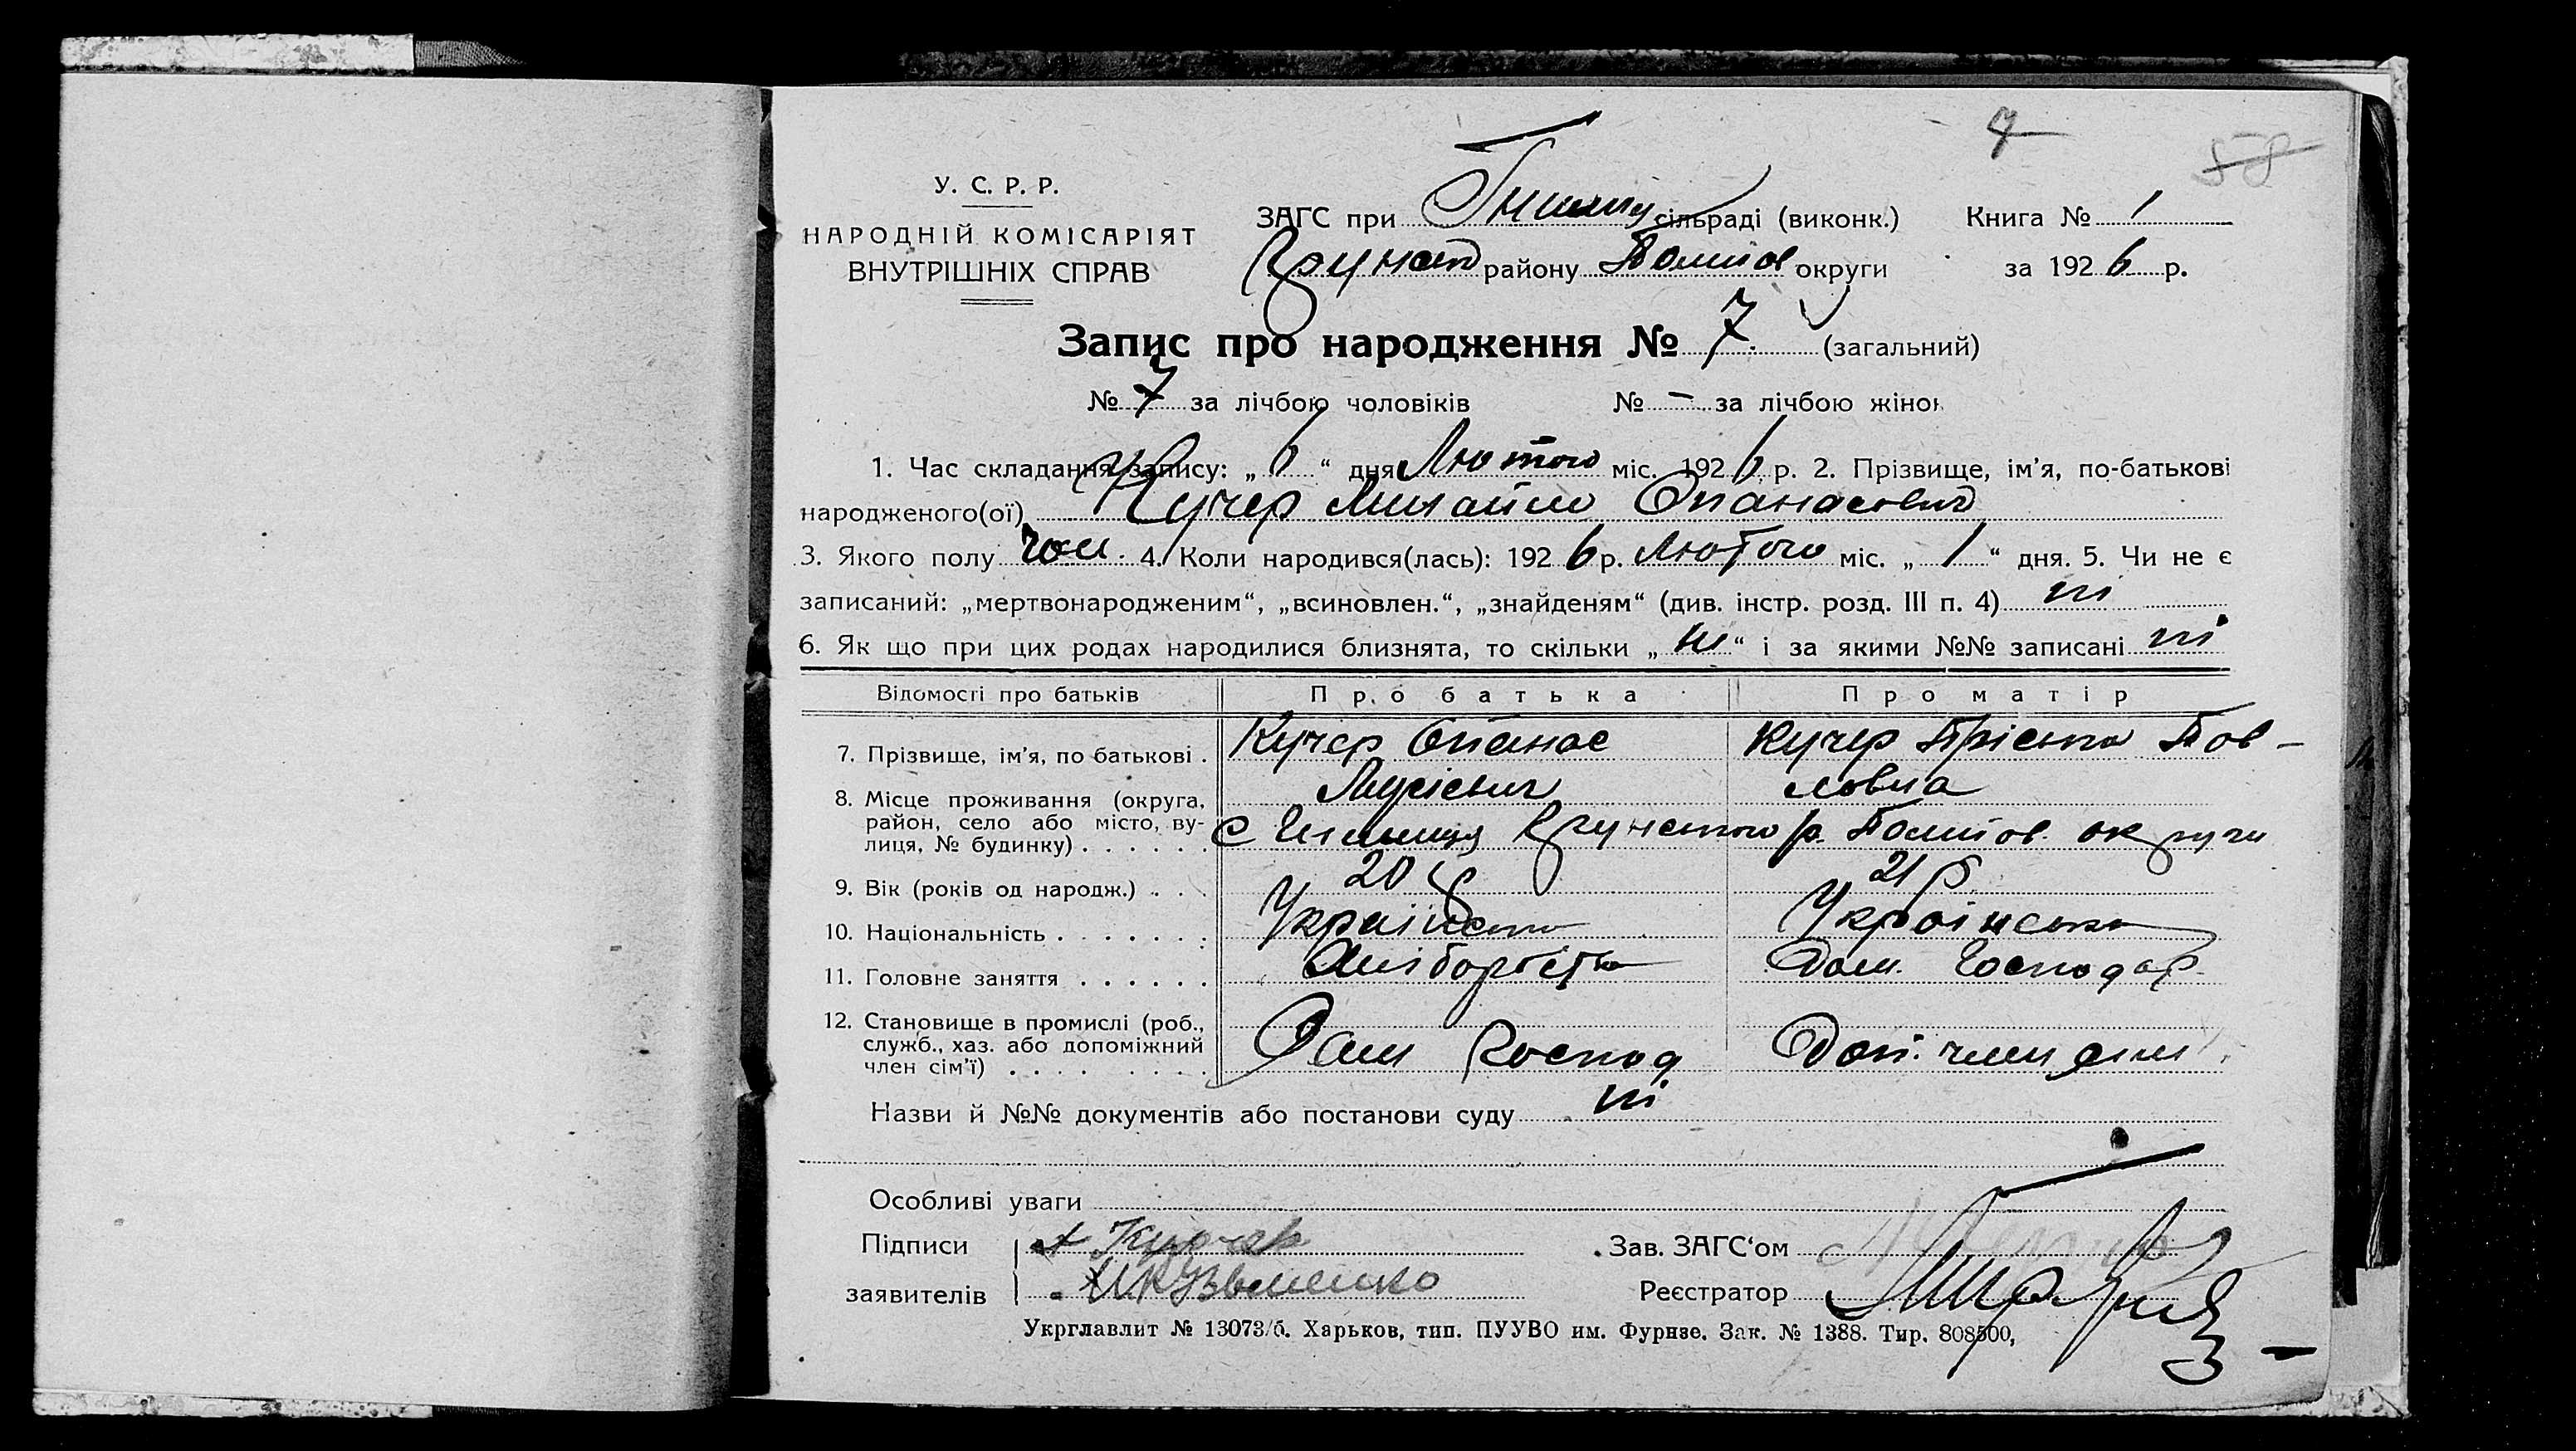 7
58
У. С. Р. Р.
НАРОДНІЙ КОМІСАРІЯТ
ВНУТРІШНІХ СПРАВ
ЗАГС при сільраді (виконк.) Книга № 1
району Полтов округи за 1926 р.
Запис про народження № 7 (загальний)
№ 7 за лічбою чоловіків № - за лічбою жінок
1. Час складання запису: „6“ дня Лютого міс. 1926 р. 2. Прізвище, ім'я, по-батькові
народженого(ої) Кучер Михайло Опанасович
3. Якого полу чол. 4. Коли народився(лась): 1926 р. Лютого міс. „1“ дня. 5. Чи не є
записаний: „мертвонародженим“, „всиновлен.“, „знайденям“ (див. інстр. розд. III п. 4) ні
6. Як що при цих родах народилися близнята, то скільки „ні“ і за якими №№ записані ні
Відомості про батьків Про батька Про матір
7. Прізвище, ім'я, по батькові . Кучер Опанас Кучер Пріська Пов-
Мусієвич ловна
8. Місце проживання (округа,
район, село або місто, ву-
лиця, № будинку) . . . . . . с Грунського р. Полтов. округи
9. Вік (років од народж.) . . . 20 р 21 р
10. Національність . . . . . . . Українець Українська
11. Головне заняття . . . . . . Хліборобство Дом. Господар.
12. Становище в промислі (роб.,
служб., хаз. або допоміжний
член сім'ї) . . . . . . . . Господ Доп. член сім
Назви й №№ документів або постанови суду ні
Особливі уваги
Підписи Кучер Зав. ЗАГС'ом
заявителів Кузьменко Реєстратор
Укрглавлит № 13073/б. Харьков, тип. ПУУВО им. Фурнзе. Зак. № 1388. Тир. 808500,